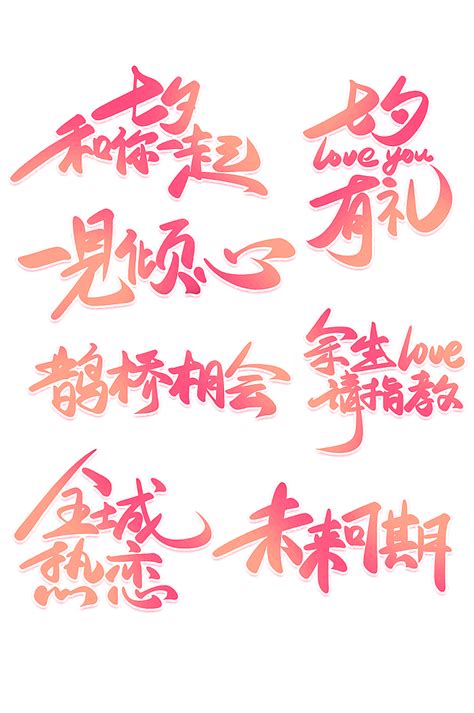 七夕
和你一起
七夕
love you
有礼
一见倾心
鹊桥相会
余生love
请指教
全城
热恋
未来可期